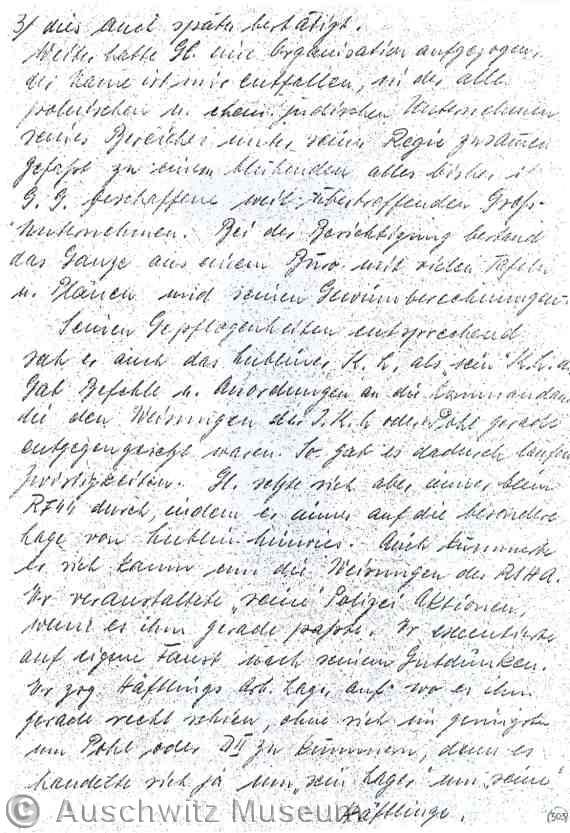 3) dies auch später bestätigt.
Weiter hatte Gl. eine Organisation aufgezogen,
der Name ist mir entfallen, in der alle
polnischen u. ehem. jüdischen Unternehmen
seines Bereiches unter seiner Regie zusammen
gefaßt zu einem blühenden alles bisher i
G. G. geschaffene weit übertreffenden Groß-
Unternehmen. Bei der Besichtigung bestand
das Ganze aus einem Büro mit vielen Tafeln
u. Plänen und seinen Gewinnberechnungen.
Seinen Gepflogenheiten entsprechend
sah er auch das Lubliner K. L. als „sein" K.L. a
Gab Befehle u. Anordnungen an die Kommandan
die den Weisungen der I.K.L. oder Pohl gerade
entgegengesetzt waren. So gab es dadurch laufen
Zwistigkeiten. Gl. setzte sich aber immer beim
RF44 durch, indem er immer auf die besondere
Lage von Lublin hinwies. Auch kümmerte
er sich kaum um die Weisungen des RSHA.
Er veranstaltete „seine" Polizei Aktionen,
wenn es ihm gerade paßte. Er executierte
auf eigene Faust nach seinem Gutdünken.
Er zog Häftlings Arb. Lager auf wo es ihm
gerade recht schien, ohne sich im geringsten
um Pohl oder DII zu kümmern, denn es
handelte sich ja um „sein Lager" um „seine"
Häftlinge.
© Auschwitz Museum
(303)